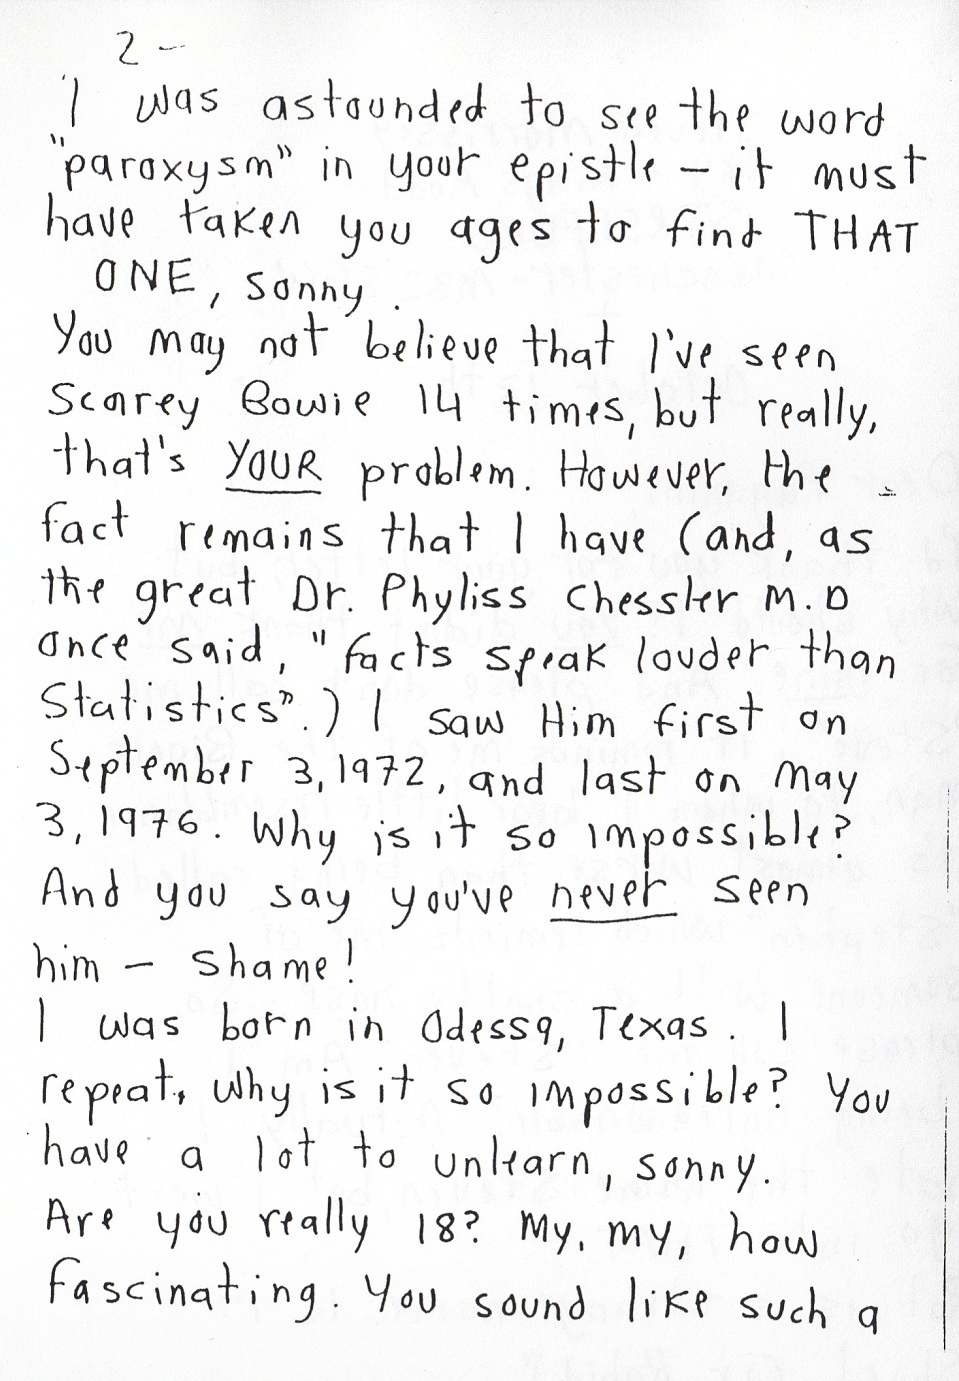 2 -
I was astounded to see the word
"paroxysm" in your epistle - it must
have taken you ages to find THAT
ONE, sonny.
You may not believe that I've seen
Scarey Bowie 14 times, but really,
that's YOUR problem. However, the
fact remains that I have (and, as
the great Dr. Phyliss Chessler M.D
once said, "facts speak louder than
Statistics".) I saw Him first on
September 3, 1972, and last on May
3, 1976. Why is it so impossible?
And you say you've never seen
him - shame!
I was born in Odessa, Texas. I
repeat, why is it so impossible? You
have a lot to unlearn, sonny.
Are you really 18? My, my, how
fascinating. You sound like such a